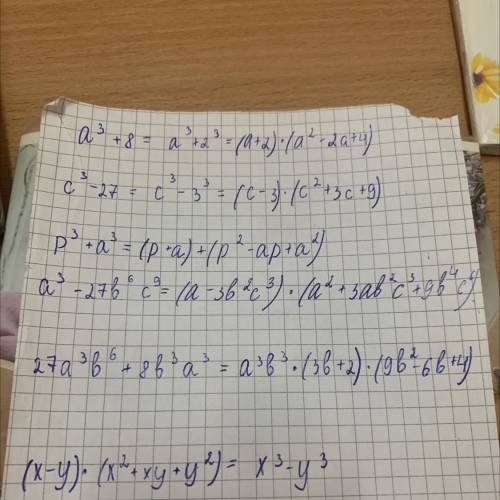 a³ + 8 = a³ + 2³ = (a+2)·(a² - 2a + 4)
c³ - 27 = c³ - 3³ = (c - 3)·(c² + 3c + 9)
p³ + a³ = (p + a) + (p² - ap + a²)
a³ - 27b⁶c⁹ = (a - 3b²c³)·(a² + 3ab²c³ + 9b⁴c⁶)
27a³b⁶ + 8b³a³ = a³b³·(3b + 2)·(9b² - 6b + 4)
(x - y)·(x² + xy + y²) = x³ - y³